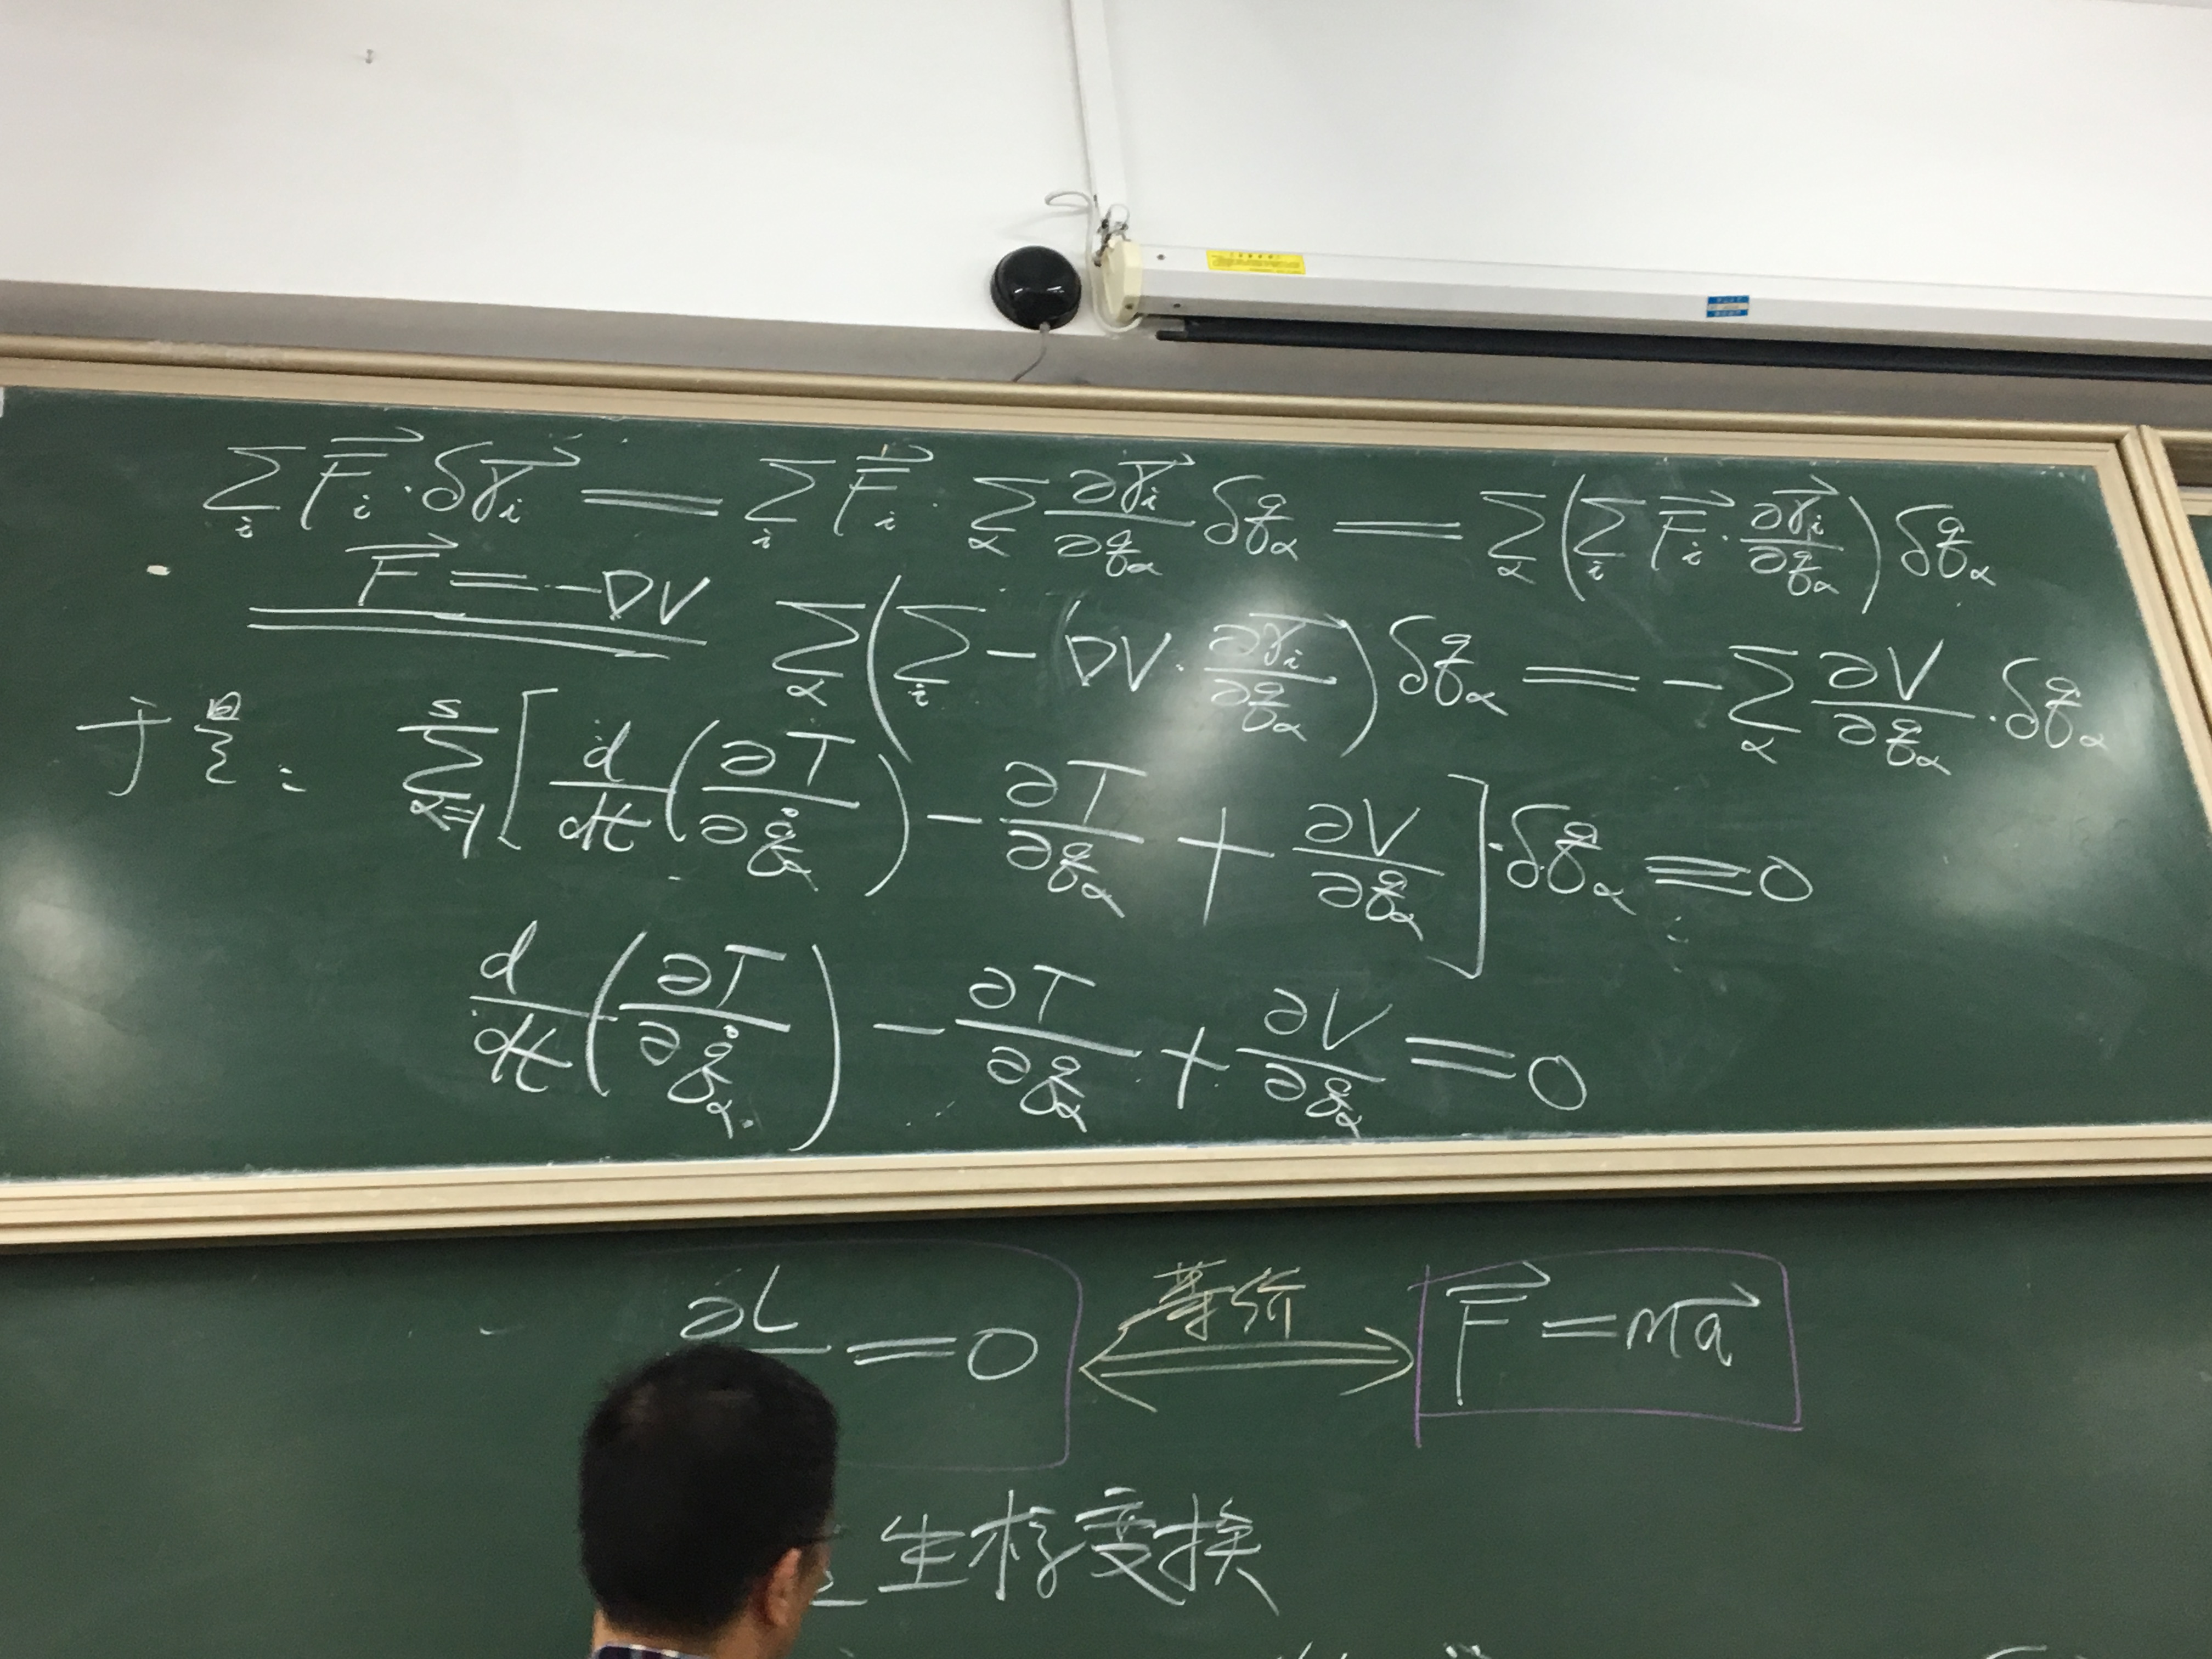 ∑_i F⃗_i · δr⃗_i = ∑_i F⃗_i · ∑_α ∂r⃗_i/∂q_α δq_α = ∑_α (∑_i F⃗_i · ∂r⃗_i/∂q_α) δq_α
F⃗ = -∇V ∑_α (∑_i - ∇V · ∂r⃗_i/∂q_α) δq_α = - ∑_α ∂V/∂q_α · δq_α
于是: ∑_{α=1}^{s} [d/dt (∂T/∂q̇_α) - ∂T/∂q_α + ∂V/∂q_α] · δq_α = 0
d/dt (∂T/∂q̇_α) - ∂T/∂q_α + ∂V/∂q_α = 0
∂L = 0 等价 ⟺ F⃗ = ma⃗
坐标变换